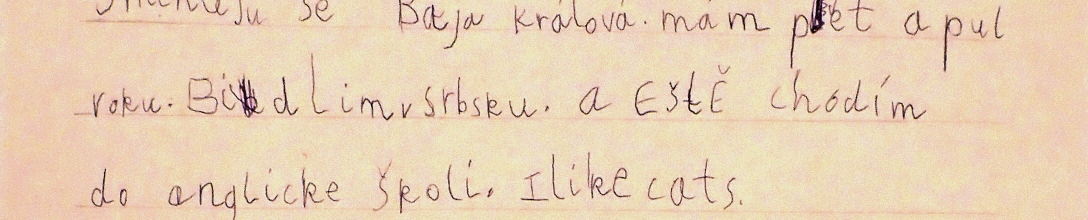 Jmenuju se Baja králová. mám pět a pul
roku. Bidlim v srbsku. a EštĚ chodím
do anglicke školi. I like cats.